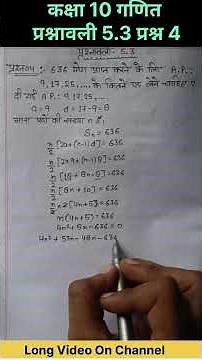 कक्षा 10 गणित
प्रश्नावली 5.3 प्रश्न 4
प्रश्नावली - 5.3
प्रश्न 04: 636 योग प्राप्त करने के लिए A.P.:
9,17,25,... के कितने पद लेने चाहिए?
दी गई A.P.: 9,17,25,...
a=9 d=17-9=8
माना पदों की संख्या n है
Sₙ=636
n/2[2a+(n-1)d]=636
n/2[2×9+(n-1)8]=636
n/2[18+8n-8]=636
n/2[8n+10]=636
n/2×2[4n+5]=636
n(4n+5)=636
4n²+5n-636=0
4n²+53n-48n-636
Long Video On Channel